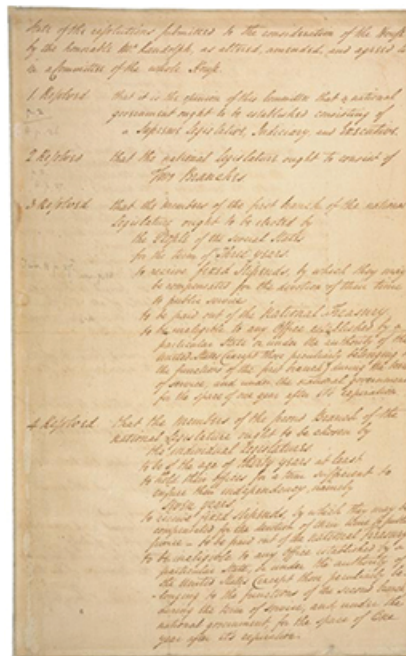 State of the resolutions submitted to the consideration of the House
by the honorable Mr. Randolph, as altered, amended, and agreed to
in a Committee of the whole House.
1 Resolved that it is the opinion of this Committee that a national
government ought to be established consisting of
a Supreme Legislative, Judiciary, and Executive.
2 Resolved that the national Legislature ought to consist of
Two Branches.
3 Resolved that the members of the first branch of the national
Legislature ought to be elected by
the People of the several States
for the term of Three years.
to receive fixed stipends, by which they may
be compensated for the devotion of their time
to public service
to be paid out of the National Treasury.
to be ineligible to any Office established by a
particular State or under the authority of the
United States (except those peculiarly belonging to
the functions of the first branch) during the term
of service, and under the national government
for the space of one year after its expiration.
4 Resolved that the members of the second Branch of the
national Legislature ought to be chosen by
the individual Legislatures.
to be of the age of thirty years at least.
to hold their offices for a term sufficient to
ensure their independency, namely
seven years.
to receive fixed stipends, by which they may be
compensated for the devotion of their time to public
service — to be paid out of the National Treasury
to be ineligible to any Office established by a
particular State, or under the authority of
the United States (except those peculiarly be-
longing to the functions of the second branch)
during the term of service, and under the
national government, for the space of One
year after its expiration.